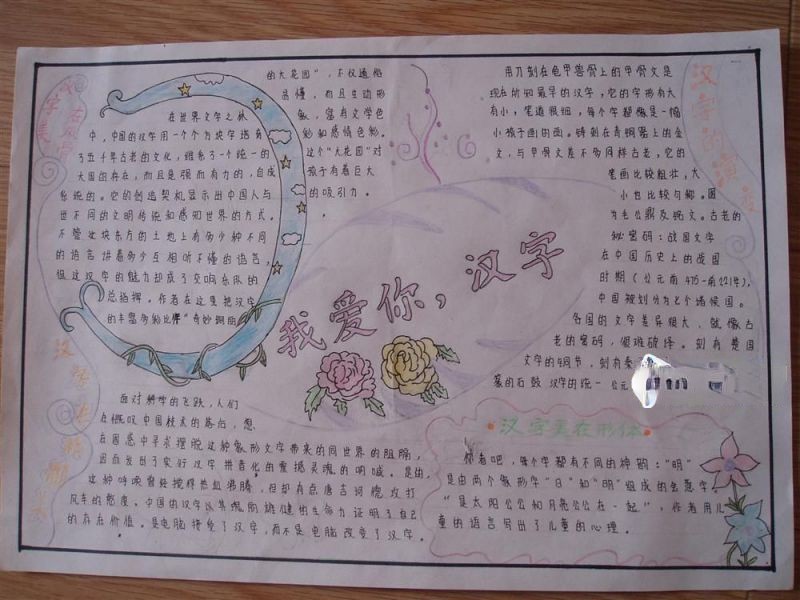 我爱你，汉字
在世界文字之林
中，中国的汉字用一个个方块字培育
了五千年古老的文化，维系了一个统一的
大国的存在，而且是强而有力的，自成
系统的。它的创造契机显示出中国人与
世不同的文明传统和感知世界的方式。
不管这块东方的土地上有多少种不同
的语言 讲着多少互相听不懂的语言，
但这汉字的魅力却成了交响乐队的
总指挥。作者在这里把汉字
的丰富多彩比作"奇妙绚丽
的大花园"，不仅通俗
易懂，而且生动形
象，富有文学色
彩和感情色彩。
这个"大花园"对
孩子有着巨大
的吸引力。
用刀刻在龟甲兽骨上的甲骨文是
现在所知最早的汉字，它的字形有大
有小，笔道很细，每个字都像是一幅
小孩子画的画。铸刻在青铜器上的金
文，与甲骨文差不多同样古老，它的
笔画比较粗壮，大
小也比较匀称。图
为毛公鼎及铭文。古老的
秘密码：战国文字
在中国历史上的战国
时期（公元前475-前221年），
中国规划分为七个诸候国。
各国的文字差异很大，就像古
老的密码，很难破译。刻有楚国
文字的铜节，刻有秦
篆的石鼓 汉字的统一 公元
面对科学的飞跃，人们
在慨叹中国技术的落后，想
在困惑中寻求摆脱这种象形文字带来的同世界的阻隔，
因而发出了实行汉字拼音化的震撼灵魂的呐喊。是的，
这种呼唤曾经搅得热血沸腾，但却有点唐吉诃德攻打
风车的态度。中国的汉字以其
的存在价值。是电脑接受了汉字，而不是电脑改变了汉字。
汉字美在形体
你看吧，每个字都有不同的神码："明"
是由两个象形字"日"和"明"组成的会意字。
"是太阳公公和月亮公公在一起"，作者用儿
童的语言写出了儿童的心理。